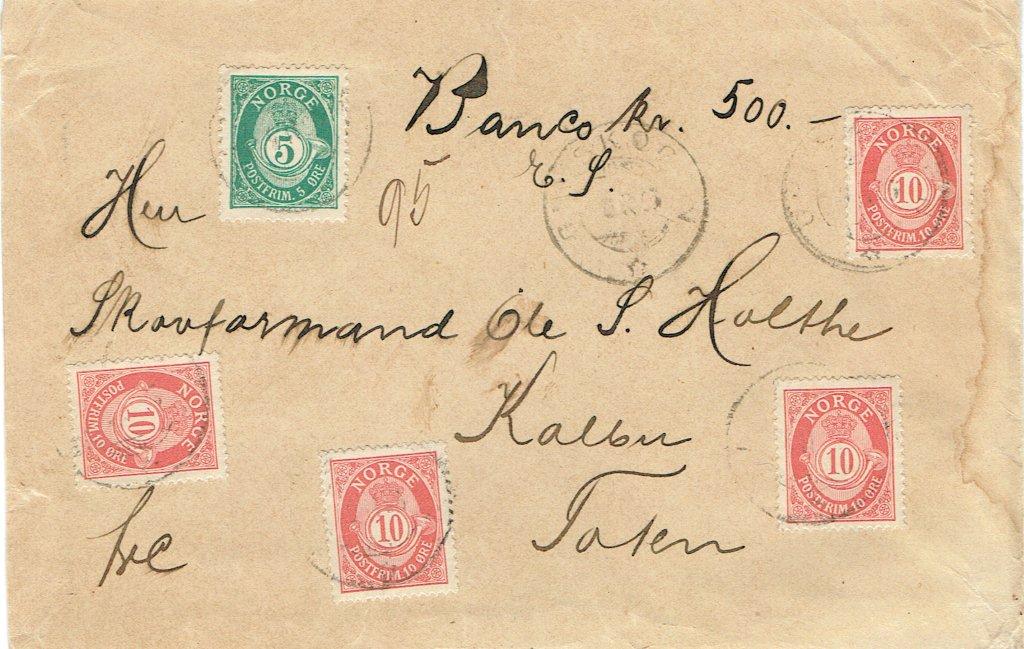 Banco kr. 500.-
E. S.
95
Herr
Skovformand Ole S. Holthe
Kolbu
Toten
frc
NORGE
5
POSTFRIM. 5 ØRE
NORGE
10
POSTFRIM. 10 ØRE
NORGE
10
POSTFRIM. 10 ØRE
NORGE
10
POSTFRIM. 10 ØRE
NORGE
10
POSTFRIM. 10 ØRE